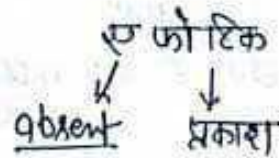 ए फोटिक
absent प्रकाश